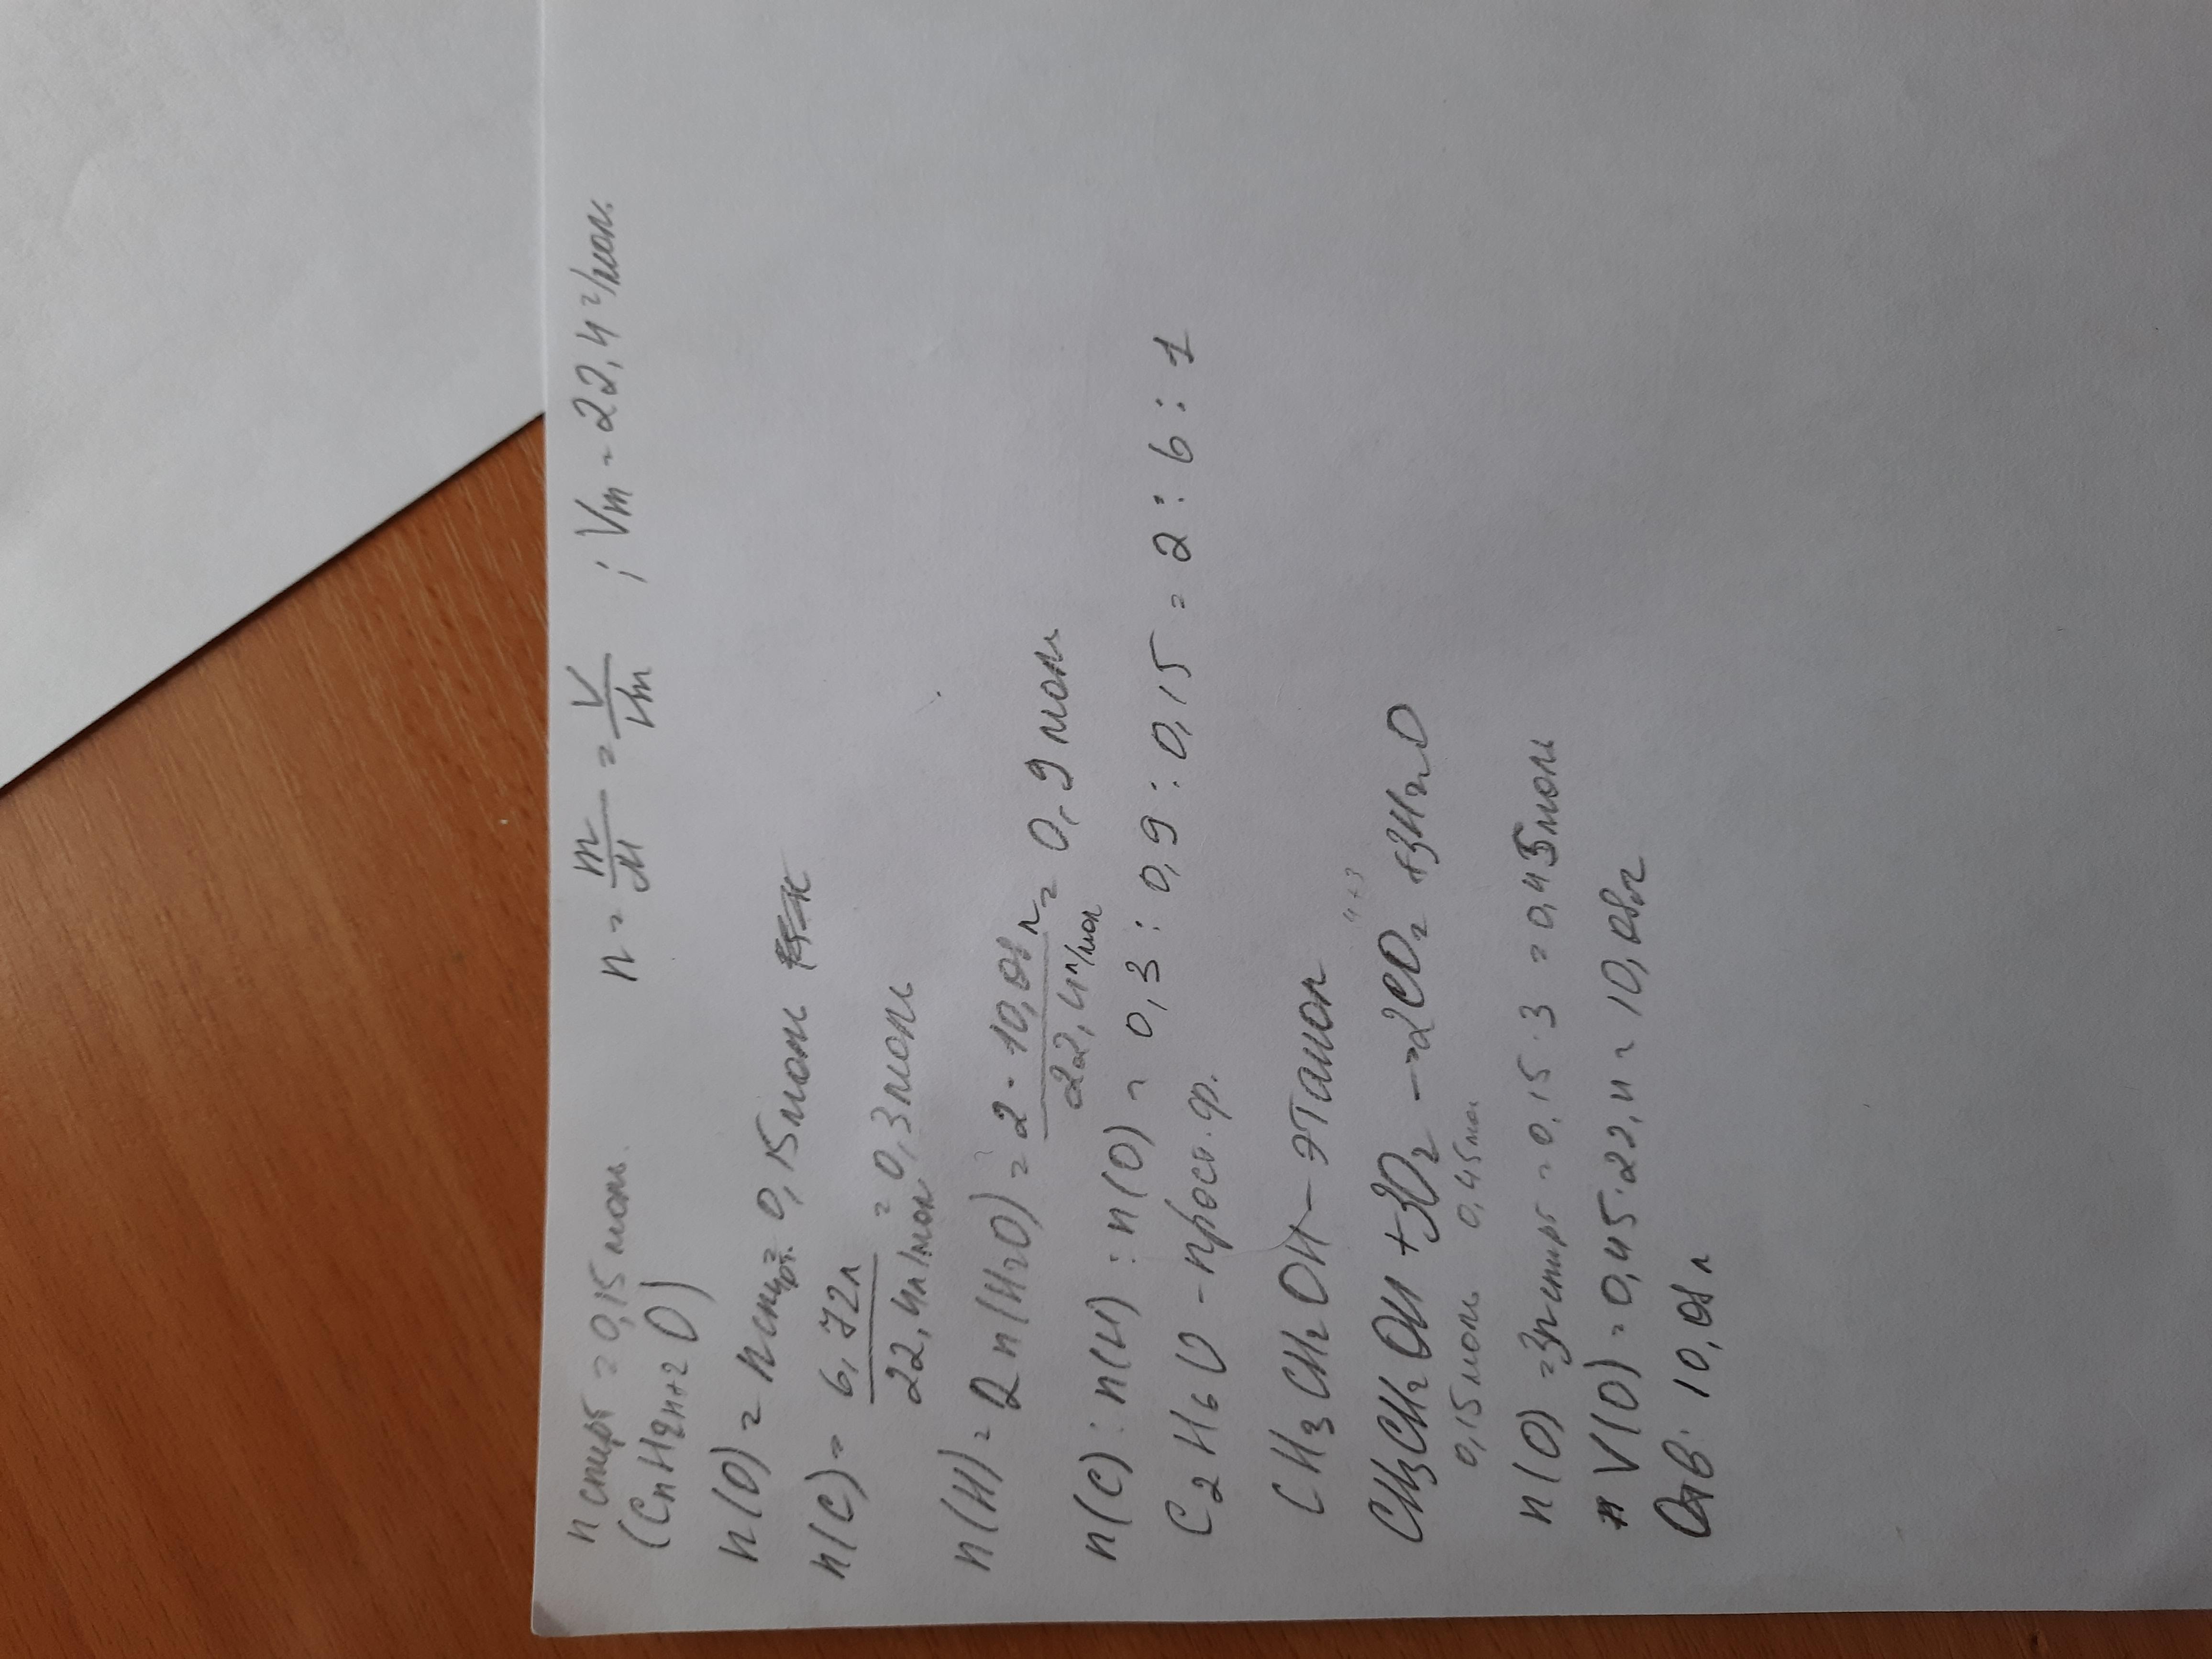 n спирт = 0,15 моль. n = m/M = V/Vm ; Vm = 22,4 л/моль.
(CnH2n+2O)
n(O) = n спирт. = 0,15 моль
n(C) = 6,72л / 22,4л/моль = 0,3 моль
n(H) = 2n(H2O) = 2 · 10,08л / 22,4 л/моль = 0,9 моль
n(C) : n(H) : n(O) = 0,3 : 0,9 : 0,15 = 2 : 6 : 1
C2H6O - прост. ф.
CH3CH2OH - этанол
4+3
CH3CH2OH + 3O2 → 2CO2 + 3H2O
0,15 моль 0,45 мол
n(O) = 3n спирт = 0,15 · 3 = 0,45 моль
V(O) = 0,45 · 22,4 = 10,08л
Отв: 10,08 л